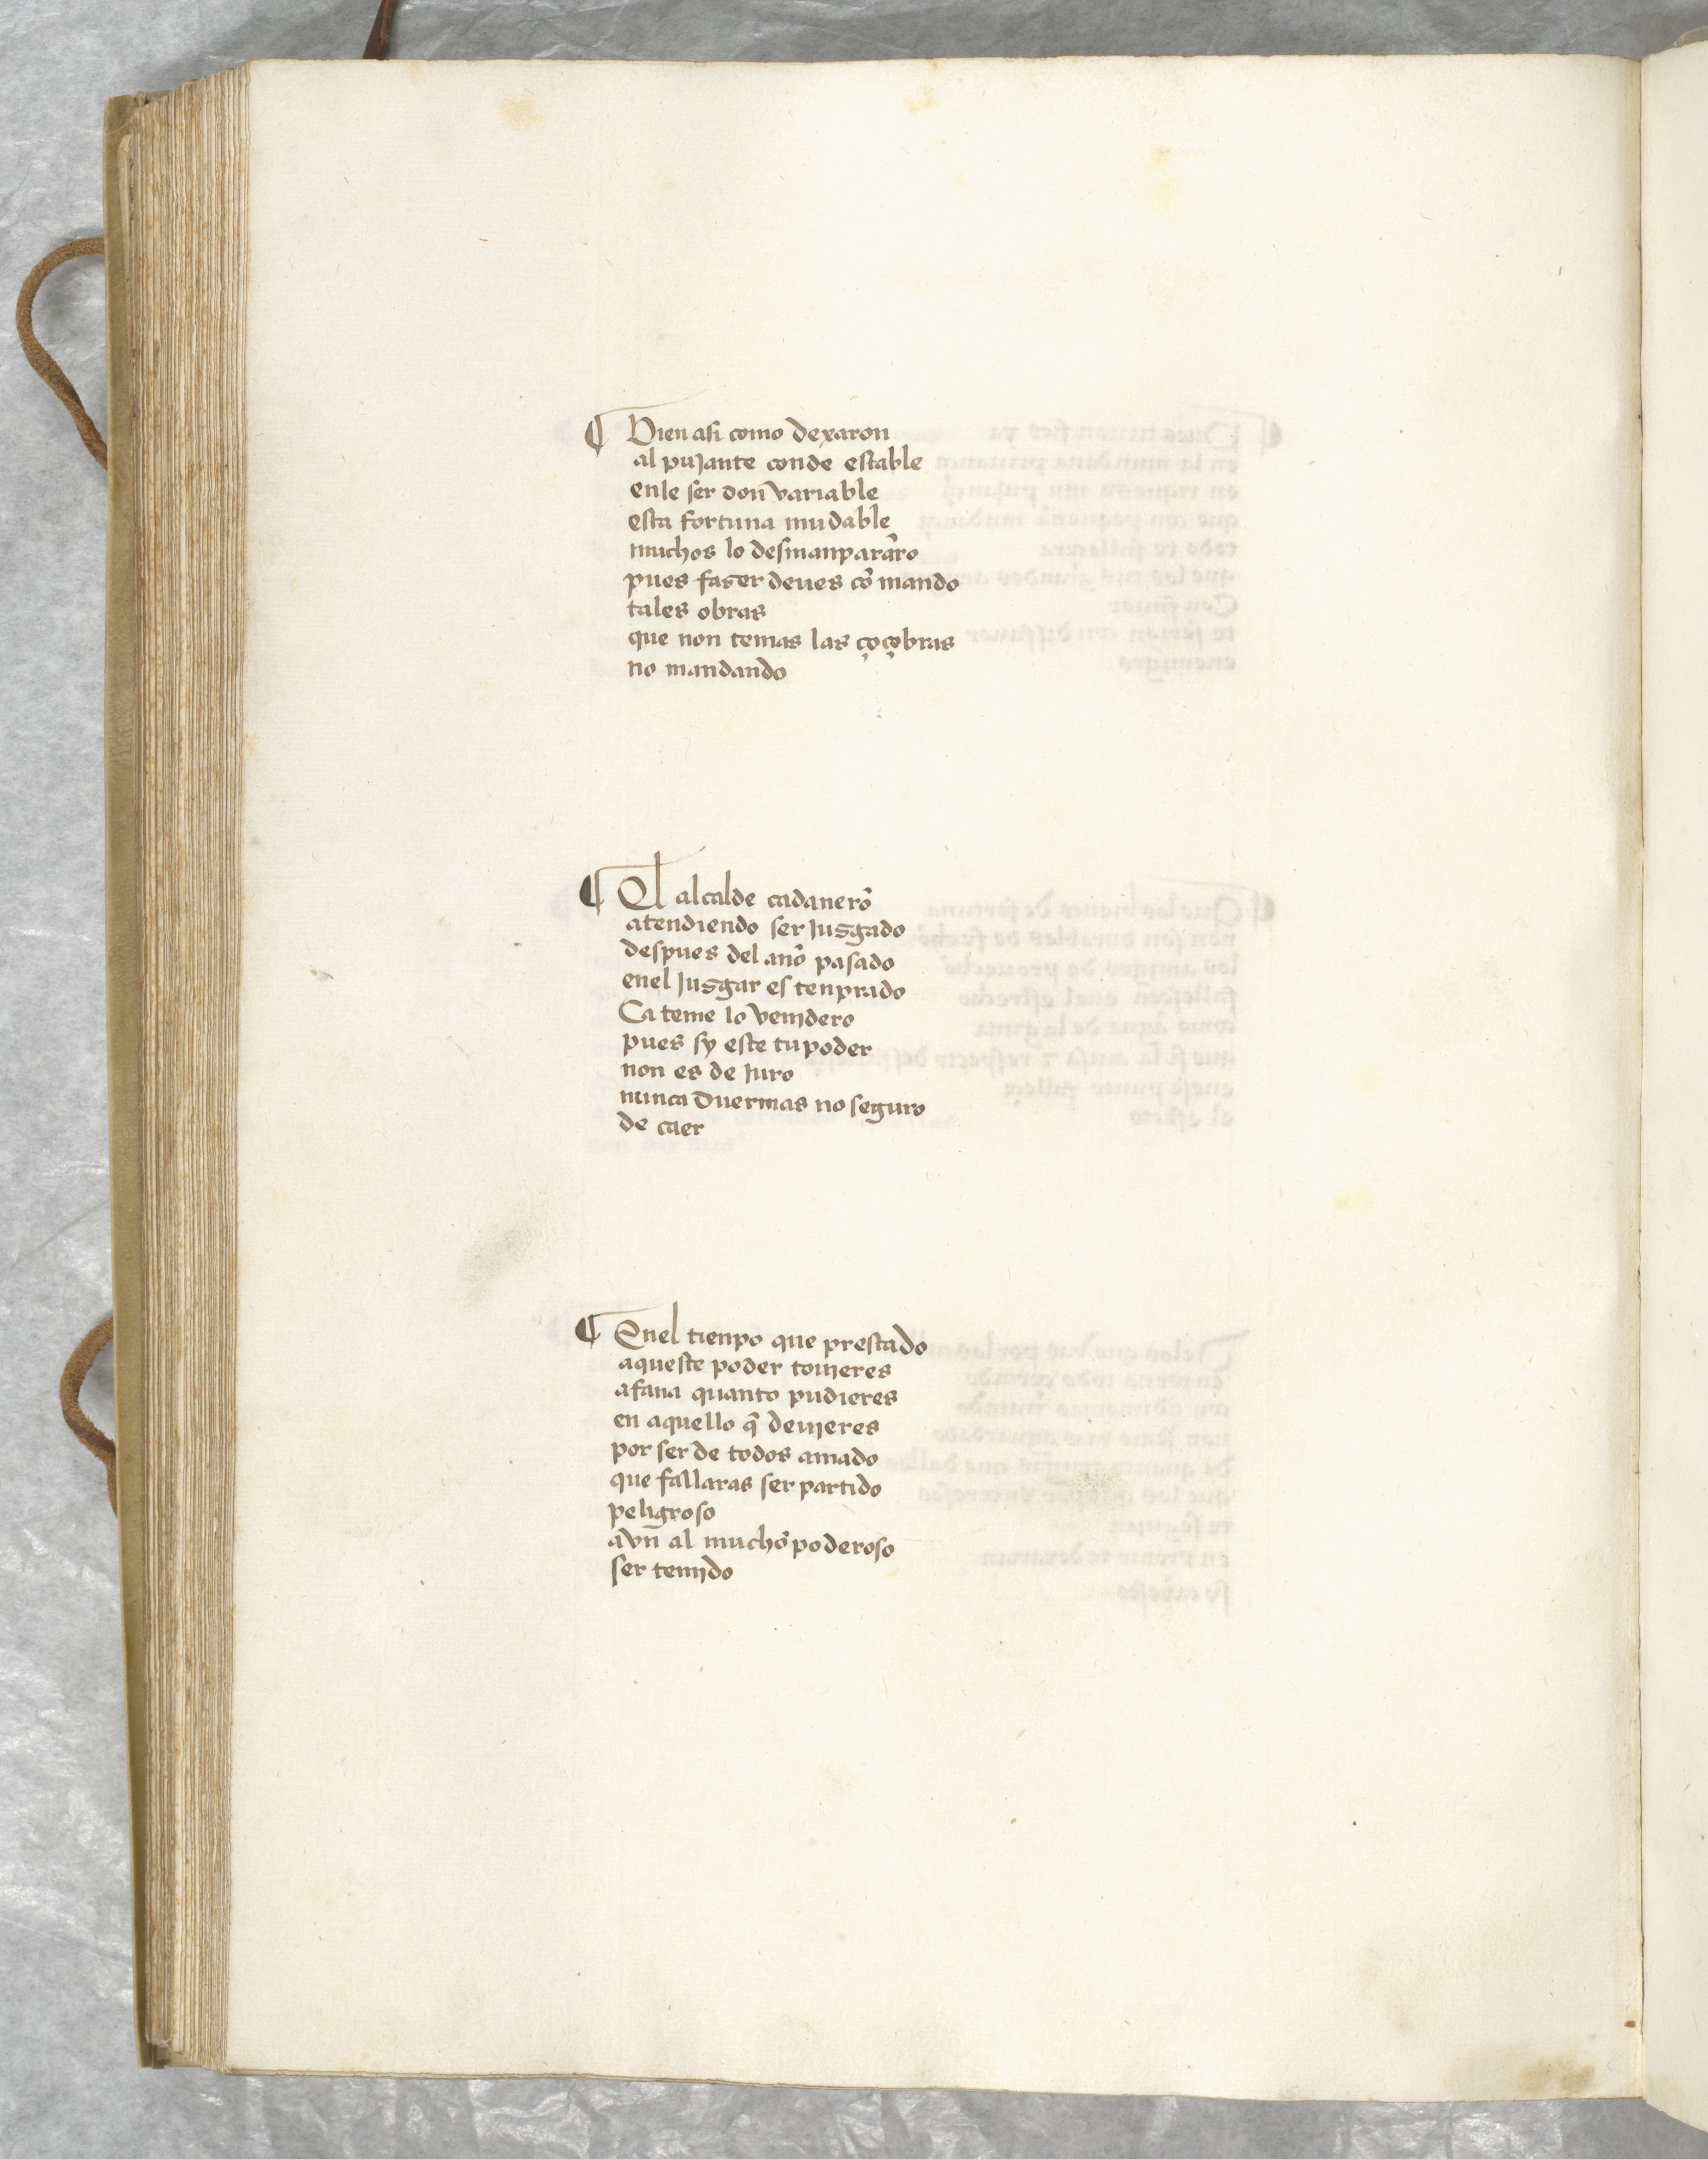 ¶ Bien asi como dexaron
al puJante conde estable
enle ser don̄ variable
esta fortuna mudable
muchos lo desmanpararō
pues faser deues cō mando
tales obras
que non temas las çoçobras
no mandando
¶ El alcalde cadanero
atendiendo ser Jusgado
despues del anō pasado
enel Jusgar es tenprado
Ca teme lo venjdero
pues sy este tu poder
non es de Juro
nunca duermas no seguro
de caer
¶ Enel tienpo que prestado
aqueste poder toujeres
afana quanto pudieres
en aquello q̄ deujeres
por ser de todos amado
que fallaras ser partido
peligroso
avn̄ al mucho poderoso
ser temjdo